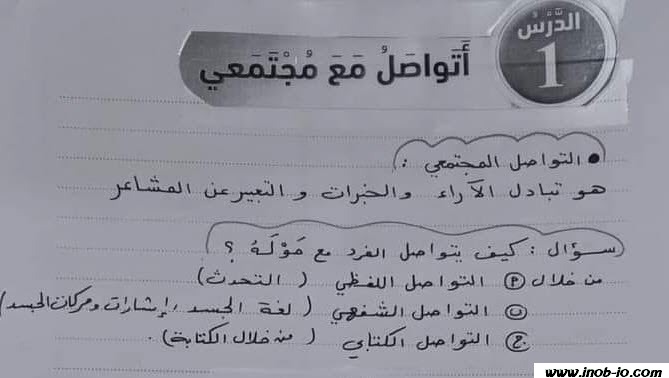 الدَّرْسُ
1
أَتَواصَلُ مَعَ مُجْتَمَعي
● التواصل المجتمعي :
هو تبادل الآراء والخبرات و التعبير عن المشاعر
سؤال : كيف يتواصل الفرد مع حَوْلَهُ ؟
من خلال أ التواصل اللفظي ( التحدث )
ب التواصل الشفهي ( لغة الجسد ، إشارات وحركات الجسد )
ج التواصل الكتابي ( من خلال الكتابة ) .
www.inob-io.com